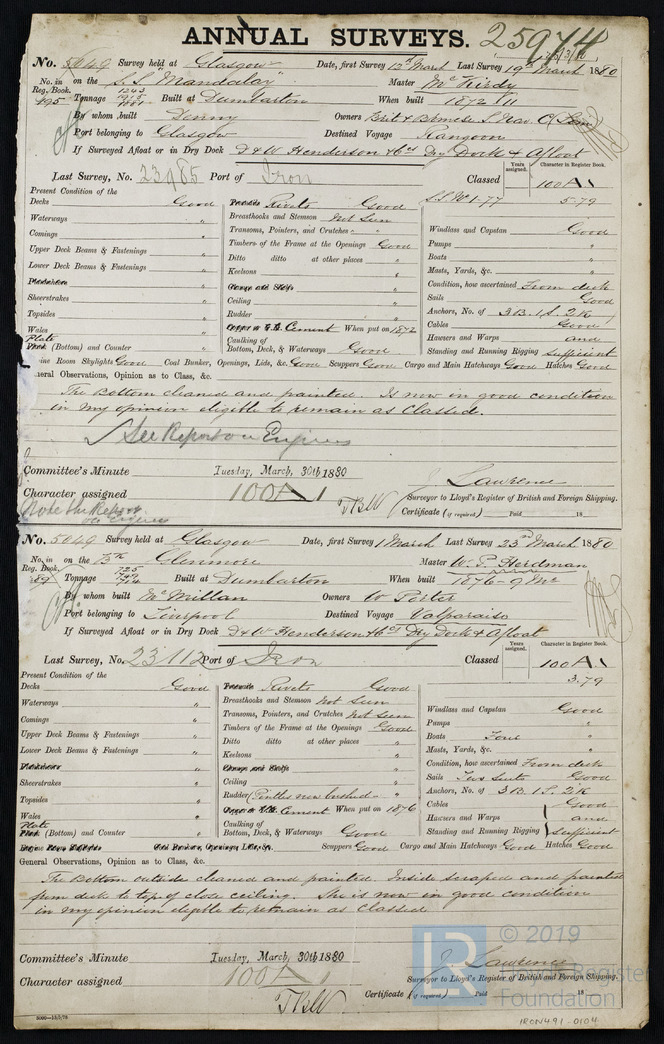 ANNUAL SURVEYS. 25974
No. 5049 Survey held at Glasgow Date, first Survey 12th March Last Survey 19th March 1880
No. in Reg. Book. on the S.S. "Mandalay" Master McKirdy
495 Tonnage Built at Dumbarton When built 1872 11
By whom built Denny Owners Brit & Burmese S. Nav. Co (Lim)
Port belonging to Glasgow Destined Voyage Rangoon
If Surveyed Afloat or in Dry Dock D & W Henderson & Co's Dry Dock & Afloat
Last Survey, No. 23985 Port of Iron Classed Years assigned. Character in Register Book. 100 A1
S.S. No 1-77 5-79
Present Condition of the
Decks Good
Waterways "
Comings "
Upper Deck Beams & Fastenings "
Lower Deck Beams & Fastenings "
Planksheers
Sheerstrakes "
Topsides "
Wales "
Plate (Bottom) and Counter "
Treenails Rivets Good
Breasthooks and Stemson Not Seen
Transoms, Pointers, and Crutches " "
Timbers of the Frame at the Openings Good
Ditto ditto at other places "
Keelsons "
Clamps and Shelfs
Ceiling "
Rudder "
Cement When put on 1872
Caulking of Bottom, Deck, & Waterways Good
Windlass and Capstan Good
Pumps "
Boats "
Masts, Yards, &c. "
Condition, how ascertained From deck
Sails Good
Anchors, No. of 3 B. 1 S. 2 K
Cables Good
Hawsers and Warps and
Standing and Running Rigging sufficient
ine Room Skylights Good Coal Bunker, Openings, Lids, &c. Good Scuppers Good Cargo and Main Hatchways Good Hatches Good
eral Observations, Opinion as to Class, &c.
The Bottom cleaned and painted. Is now in good condition
in my opinion eligible to remain as Classed.
See Report on Engines
Committee's Minute Tuesday, March, 30th 1880
J. Lawrence
Character assigned 100 A 1
Surveyor to Lloyd's Register of British and Foreign Shipping.
Certificate (if required) Paid 18
Note the Report on Engines
No. 5049 Survey held at Glasgow Date, first Survey 1 March Last Survey 23rd March 1880
No. in Reg. Book. on the Bk Glenmore Master W. P. Herdman
89 Tonnage Built at Dumbarton When built 1876-9 Mo
By whom built McMillan Owners W Porter
Port belonging to Liverpool Destined Voyage Valparaiso
If Surveyed Afloat or in Dry Dock D & W Henderson & Co's Dry Dock & Afloat
Last Survey, No. 23112 Port of Iron Classed Years assigned. Character in Register Book. 100 A1
3.79
Present Condition of the
Decks Good
Waterways "
Comings "
Upper Deck Beams & Fastenings "
Lower Deck Beams & Fastenings "
Planksheers
Sheerstrakes "
Topsides "
Wales "
Plate (Bottom) and Counter "
Treenails Rivets Good
Breasthooks and Stemson Not Seen
Transoms, Pointers, and Crutches Not Seen
Timbers of the Frame at the Openings Good
Ditto ditto at other places "
Keelsons "
Clamps and Shelfs
Ceiling "
Rudder (Pintles now bushed "
Cement When put on 1876
Caulking of Bottom, Deck, & Waterways Good
Windlass and Capstan Good
Pumps "
Boats Four "
Masts, Yards, &c. "
Condition, how ascertained From deck
Sails Two Suits Good
Anchors, No. of 3 B. 1 S. 2 K
Cables Good
Hawsers and Warps and
Standing and Running Rigging sufficient
Engine Room Skylights Coal Bunker, Openings, Lids, &c. Scuppers Good Cargo and Main Hatchways Good Hatches Good
General Observations, Opinion as to Class, &c.
The Bottom outside cleaned and painted. Inside scraped and painted
from deck to top of close ceiling. She is now in good condition
in my opinion eligible to remain as Classed
Committee's Minute Tuesday, March, 30th 1880
J. Lawrence
Character assigned 100 A 1
Surveyor to Lloyd's Register of British and Foreign Shipping.
Certificate (if required) Paid 18
LR © 2019
Lloyd's Register
Foundation
IRON491-0104